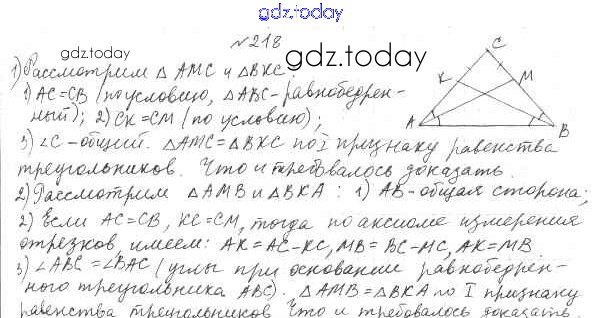 gdz.today
№218
gdz.today
gdz.today
1) Рассмотрим △ AMC и △BKC:
1) AC=CB (по условию, △ABC-равнобедрен-
ный); 2) CK=CM (по условию);
3) ∠C-общий. △AMC=△BKC по I признаку равенства
треугольников. Что и требовалось доказать.
2) Рассмотрим △AMB и △BKA: 1) AB-общая сторона;
2) Если AC=CB, KC=CM, тогда по аксиоме измерения
отрезков имеем: AK=AC-KC, MB=BC-MC, AK=MB
3) ∠ABC=∠BAC (углы при основании равнобедрен-
ного треугольника ABC). △AMB=△BKA по I признаку
равенства треугольников Что и требовалось доказать.
C
K
M
A
B